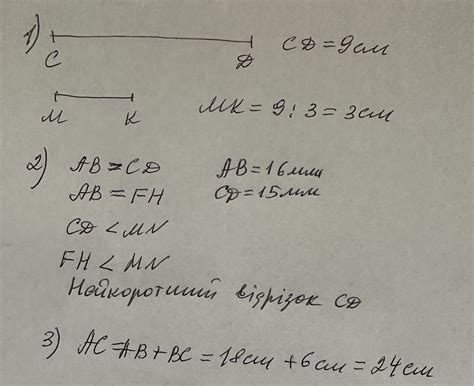 1) C Д CД = 9 см
М К МК = 9 : 3 = 3 см
2) AB = CД AB = 16 мм
AB = FH CД = 15 мм
CД < MN
FH < MN
Найкоротший відрізок CД
3) AC = AB + BC = 18 см + 6 см = 24 см